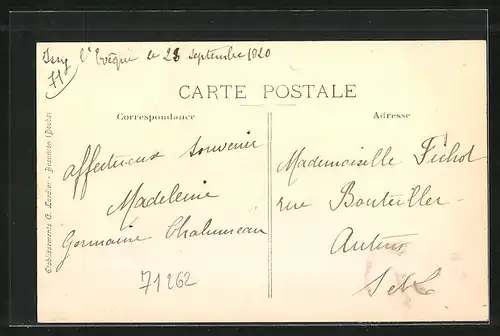 Issy l'Evêque le 28 septembre 1920
71
CARTE POSTALE
Correspondance
Adresse
affectueux souvenir
Madeleine
Germaine
Mademoiselle Pichot
rue Bouteiller
Autun
S et L
71262
Etablissements C. Lardier - Besancon (Doubs)